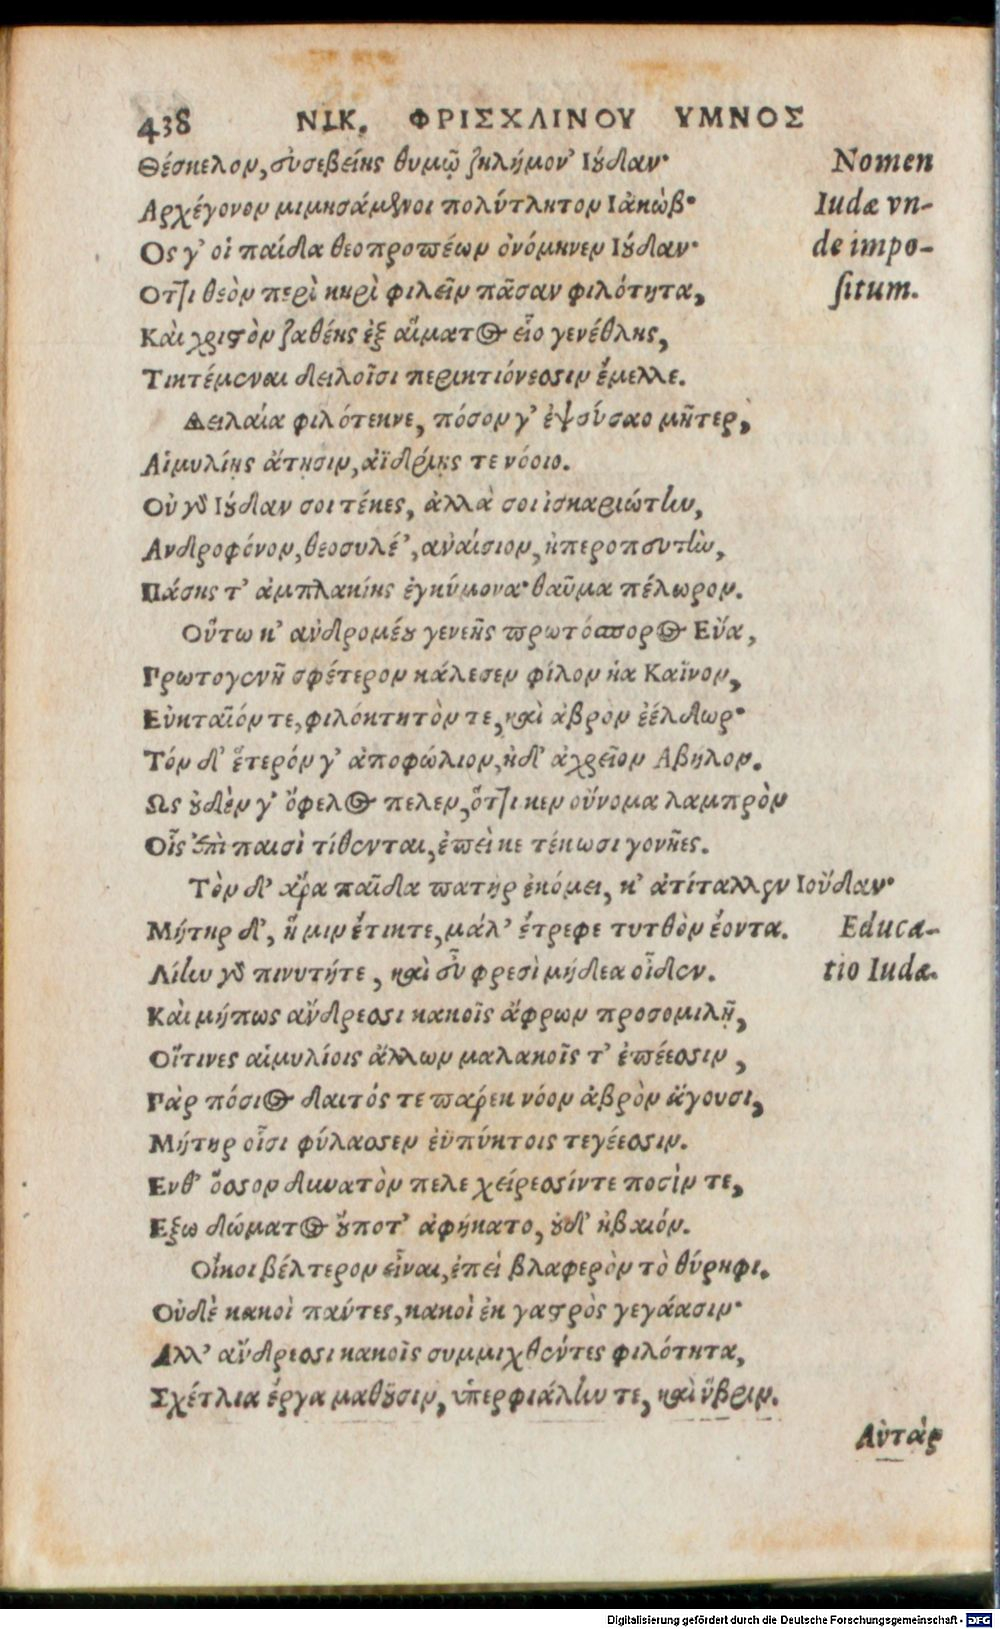 438 ΝΙΚ. ΦΡΙΣΧΛΙΝΟΥ ΥΜΝΟΣ
Θέσκελον, εὐσεβείης θυμῷ ζηλήμον' Ιούδαν·
Nomen
Αρχέγονον μιμησάμενοι πολύτλητον Ιακώβ·
Iudæ vn-
Ος γ' οἱ παίδα θεοπροπέων ὀνόμηνεν Ιούδαν·
de impo-
Οτ]ι θεὸν περὶ κηρὶ φιλεῖν πᾶσαν φιλότητα,
situm.
Καὶ χριστὸν ζαθέης ἐξ αἵματος εἷο γενέθλης,
Τικτέμεναι δειλοῖσι περικτιόνεσσιν ἔμελλε.
Δειλαία φιλότεκνε, πόσον γ' ἐψεύσαο μῆτερ,
Αἱμυλίῃς ἄτῃσιν, ἀϊδρίῃς τε νόοιο.
Οὐ γὰρ Ιούδαν σοι τέκες, ἀλλὰ σοι ἰσκαριώτην,
Ανδροφόνον, θεοσυλέ', αναίσιον, ἠπεροπευτὴν,
Πάσης τ' ἀμπλακίης ἐγκύμονα· θαῦμα πέλωρον.
Οὕτω κ' ανδρομέου γενεῆς πρωτόσπορος Εὔα,
Πρωτογενῆ σφέτερον κάλεσεν φίλον ἡα Καΐνον,
Εὐκταῖόν τε, φιλόκτητόν τε, καὶ ἁβρὸν ἐέλδωρ·
Τόν δ' ἕτερόν γ' ἀποφώλιον, ἠδ' ἀχρεῖον Αβηλον.
Ως οὐδὲν γ' ὄφελος πελεν, ὅτ]ι κεν οὔνομα λαμπρὸν
Οἷς ἐπὶ παισὶ τίθενται, ἐπεί κε τέκωσι γονῆες.
Τὸν δ' ἄρα παῖδα πατὴρ ἐκόμει, κ' ἀτίταλλεν Ιούδαν·
Μήτηρ δ', ἥ μιν ἔτικτε, μάλ' ἔτρεφε τυτθὸν ἐόντα.
Educa-
Λίην γὰρ πινυτήτε, καὶ εὖ φρεσὶ μήδεα οἶδεν.
tio Iudæ.
Καὶ μήπως ἄνδρεσσι κακοῖς ἄφρων προσομιλῇ,
Οἵτινες αἱμυλίοις ἄλλων μαλακοῖς τ' ἐπέεσσιν,
Γὰρ πόσιος δαιτός τε παρέκ νόον ἁβρὸν ἄγουσι,
Μήτηρ οἷσι φύλασσεν ἐϋπύκτοις τεγέεσσιν.
Ενθ' ὅσσον δυνατὸν πελε χείρεσσίντε ποσίν τε,
Εξω δώματος οὔποτ' ἀφήκατο, οὐδ' ἠβαιόν.
Οἴκοι βέλτερον εἶναι, ἐπεὶ βλαφερὸν τὸ θύρηφι.
Οὐδὲ κακοὶ πάντες, κακοὶ ἐκ γαστρὸς γεγάασιν·
Αλλ' ἄνδρεσσι κακοῖς συμμιχθέντες φιλότητα,
Σχέτλια ἔργα μαθοῦσιν, ὑπερφιάλην τε, καὶ ὕβριν.
Αὐτὰρ
Digitalisierung gefördert durch die Deutsche Forschungsgemeinschaft - DFG